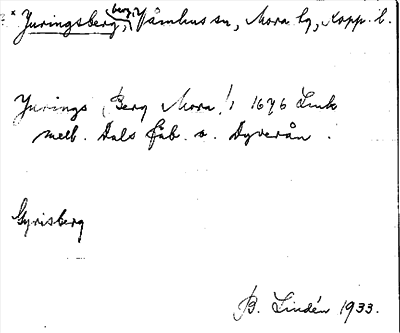 * Juringsberg, berg, Våmhus sn, Mora tg, Kopp. l.
Jurings Berg Mora! 1676 Link
mell. Dals fäb. o. Dyverån.
Gyrisberg
B. Lindén 1933.